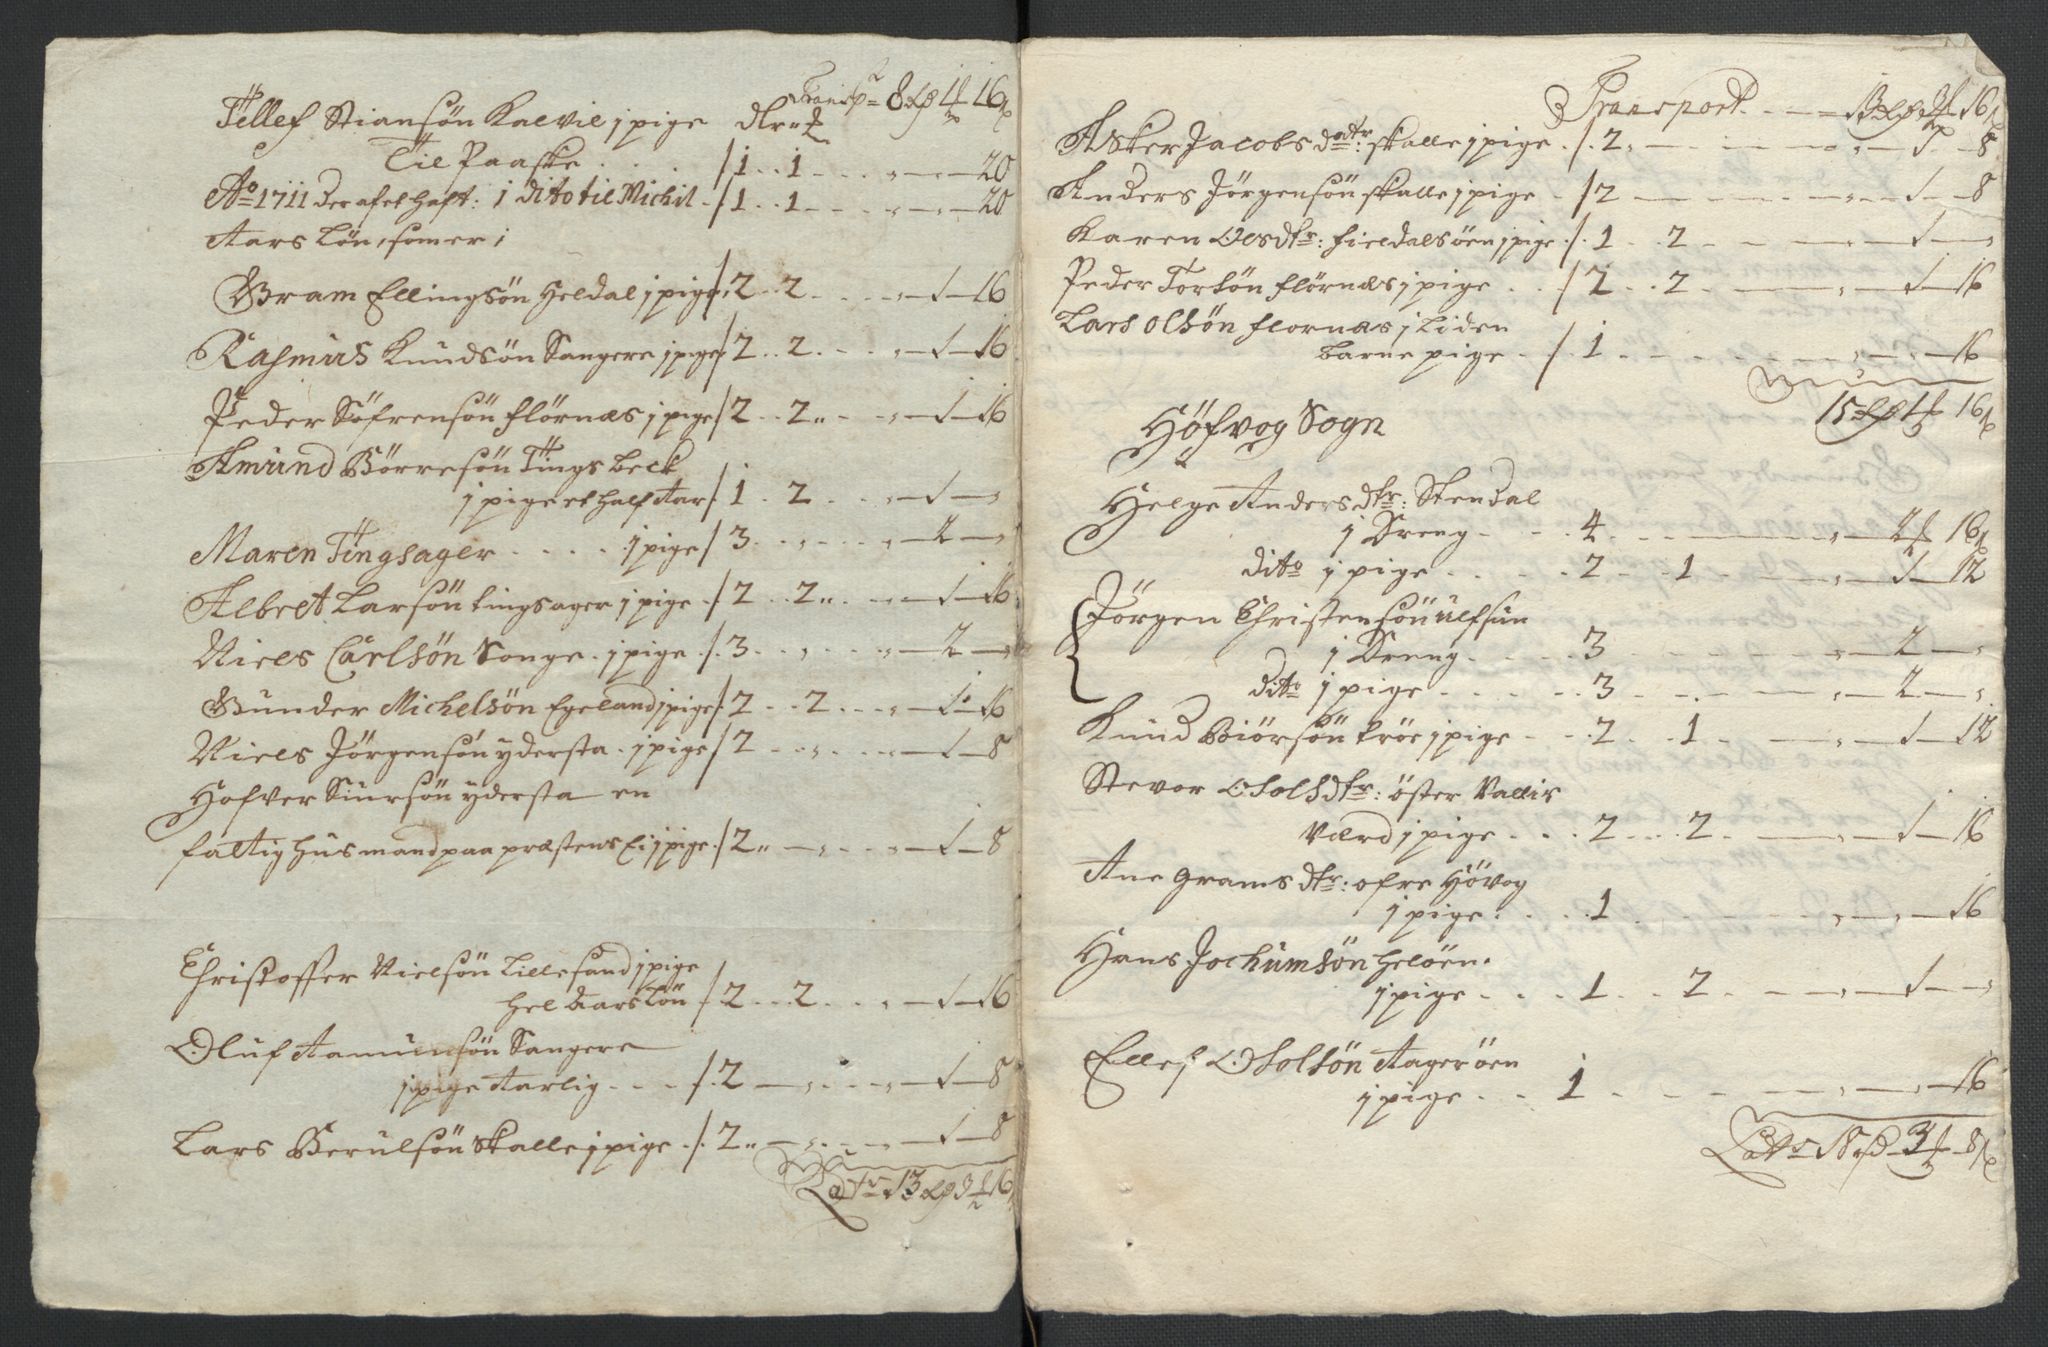 Transp 8 rd 1 16
Tellef Stiansøn Kalvil j pige dlr
Til Paaske . . . 1 . . 1 . . . 20
Ao 1711 der afel haft: 1 dito til Michil . 1 . . 1 . . . 20
Aars Løn, som er;
Gram Ellingsøn Heldal j pige 2 . . 2 . . . 1 — 16
Rasmus Knudsøn Sangere j pige 2 . . 2 . . . 1 — 16
Peder Söfrensön flörnæs j pige 2 . . 2 . . . 1 — 16
Amund Börresön Tingsbeck
j pige et half Aar 1 . 2 . . . 1 —
Maren Tingsager . . . . j pige 3 . . . 2 —
Albret Larsön tingsager j pige . 2 . . 2 . . . 1 — 16
Niels Carlsön Songe . j pige . 3 . . . 2 —
Gunder Michelsön Egeland j pige 2 . . 2 . . . 1 — 16
Niels Jörgensön ydersta . j pige 2 . . . 1 — 8
Hafver Siursön ydersta en
fattig husmand paa præstens Ei j pige . 2 — 1 — 8
Christoffer Nielsön Lillesand j pige
hel Aars Lön 2 . . 2 . . . 1 — 16
Oluf Aamunsön Sangere
j pige Aarlig . . . 2 — 1 — 8
Lars Berulsön Skalle j pige . 2 — 1 — 8
Latr 13 rd 3 16
Transport . . . 13 rd 3 16
Asker Jacobs datr: skalle j pige . 2 . — 1 — 8
Anders Jörgensön skalle j pige . 2 — 1 — 8
Karen Olsdtr: fieldalsöen j pige . 1 . . 2 . — 1 —
Peder Torsön flörnæs j pige . . . 2 . . 2 . — 1 — 16
Lars Olsön flornæs j Liden
barne pige . 1 . . . — 16
15 rd 1 16
Höfvog Sogn
Helge Anders dtr: Stendal
j Dreng . . . 4 . — 2 16
dito j pige . . . . 2 . . 1 — 1 — 12
Jörgen Christensön ulfsun
j Dreng . . . . 3 . — 2 —
dito j pige . . . . . 3 . . — 2 —
Knud Biörsön tröe j pige . . . 2 . . 1 . — 1 — 12
Stevor Osolsdtr: öster Vallis
værd j pige . . . 2 . . . 2 . — 1 — 16
Ane grams dtr: ofre Hövog
j pige . . . . 1 . . — 16
Hans Jochumsön heløen .
j pige . . . 1 . . 2 . — 1 —
Ellef Osolsön Aagerøen
j pige . . . 1 . . . — 16
Latr 18 rd 3 8